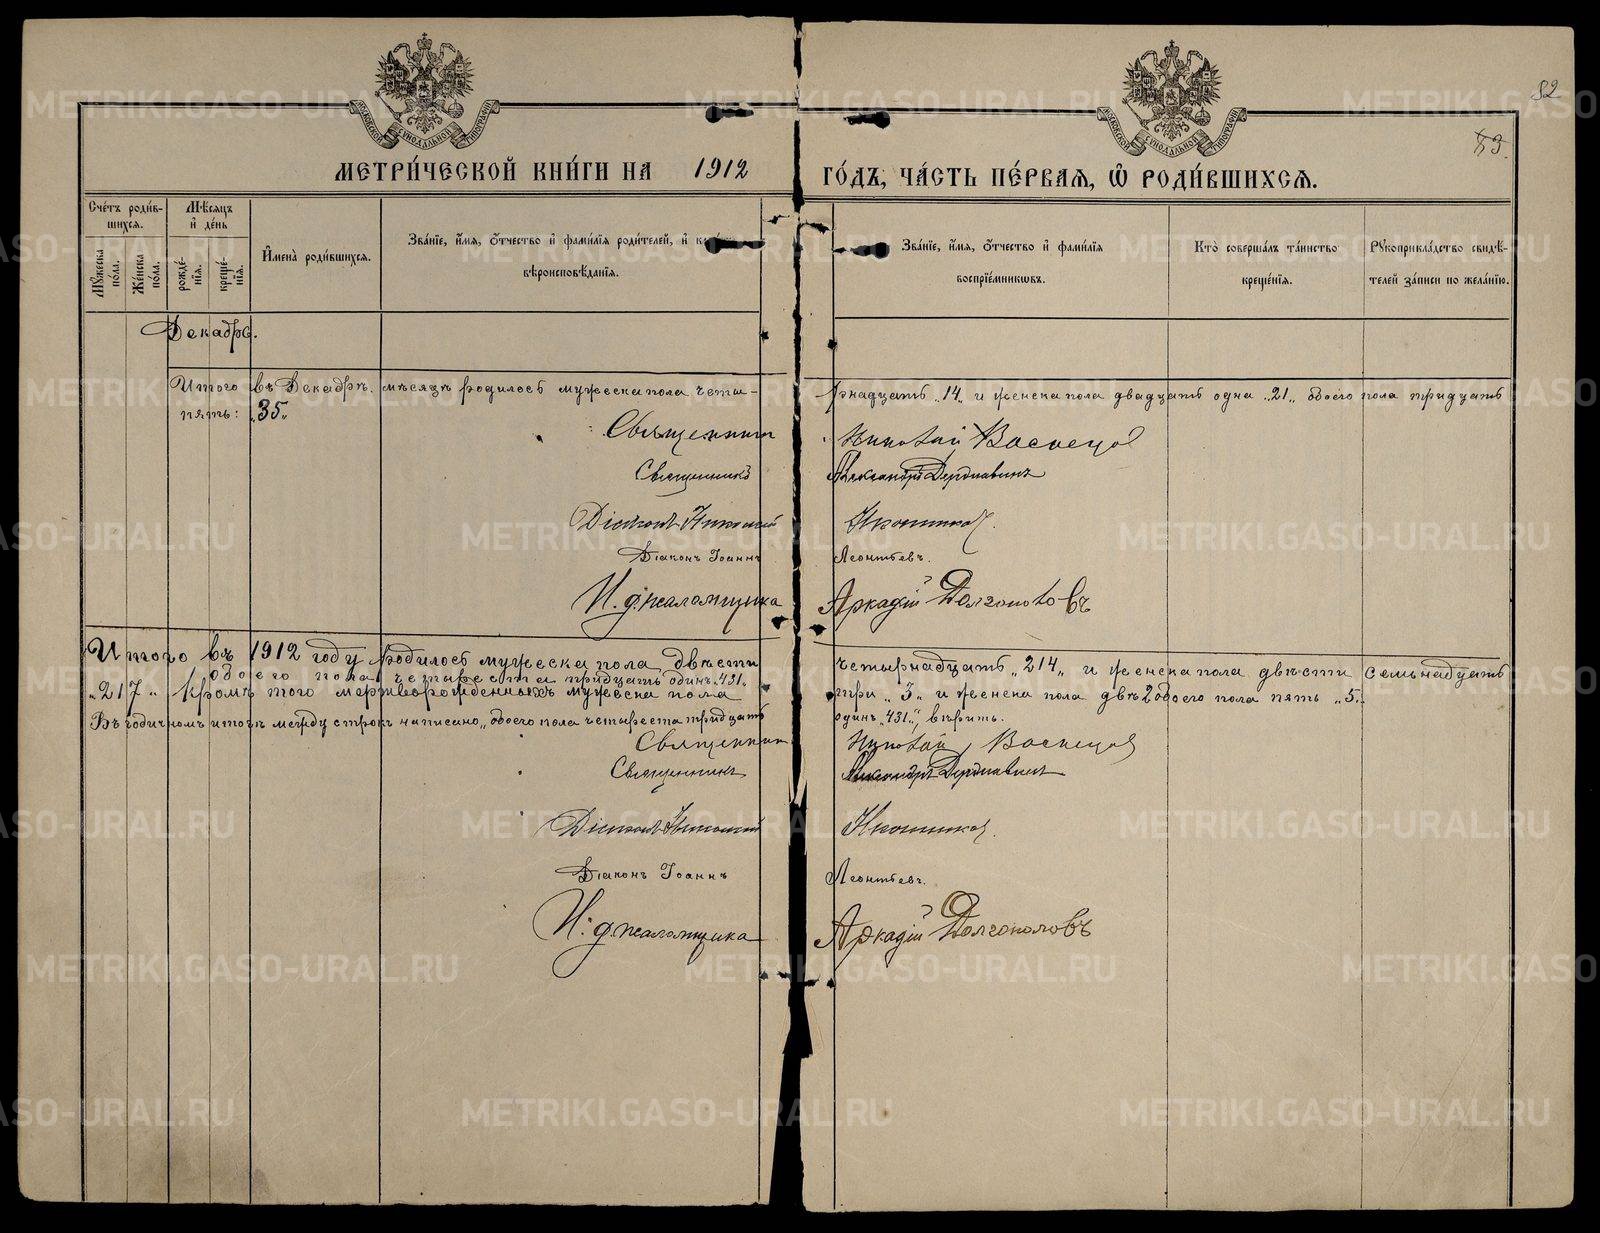 82
83.
МОСКОВСКОЙ СѴНОДАЛЬНОЙ ТИПОГРАФІИ
МОСКОВСКОЙ СѴНОДАЛЬНОЙ ТИПОГРАФІИ
МЕТРИ́ЧЕСКОЙ КНИ́ГИ НА 1912 ГО́ДЪ, ЧА́СТЬ ПЕ́РВАЯ, Ѡ РОДИ́ВШИХСЯ.
Сче́тъ роди́вшихся.
Му́жеска по́ла.
Же́нска по́ла.
Мѣ́сяцъ и҆ де́нь
рожде́нїя.
креще́нїя.
И҆мена̀ роди́вшихся.
Зва́нїе, и҆́мя, ѻ҆́тчество и҆ фами́лїя роди́телей, и҆
вѣроисповѣ́данїя.
Зва́нїе, и҆́мя, ѻ҆́тчество и҆ фами́лїя
воспрїе́мникѡвъ.
Кто̀ соверша́лъ та́инство
креще́нїя.
Рꙋкоприкла́дство свидѣ́-
телей за́писи по жела́нїю.
Декабрь.
Итого въ Декабрѣ мѣсяцѣ родилось мужеска пола четы-
рнадцать „14„ и женска пола двадцать одна „21„ обоего пола тридцать
пять: „35„
Священникъ Николай Васнецов
Священникъ Александръ Державинъ
Діаконъ Николай Иконников
Діаконъ Іоаннъ Леонтьевъ.
И. д. псаломщика Аркадій Долгополовъ
Итого въ 1912 году родилось мужеска пола двѣсти четырнадцать „214„ и женска пола двѣсти семьнадцать
обоего пола четыреста тридцать одинъ „431„
„217„ Кромѣ того мертворожденныхъ мужеска пола три „3„ и женска пола двѣ 2 обоего пола пять „5.
Въ годичномъ итогѣ между строкъ написано „обоего пола четыреста тридцать одинъ „431„, вѣрить.
Священник Николай Васнецов
Священникъ Александръ Державинъ
Діаконъ Николай Иконников
Діаконъ Іоаннъ Леонтьевъ.
И. д. псаломщика Аркадій Долгополовъ
METRIKI.GASO-URAL.RU